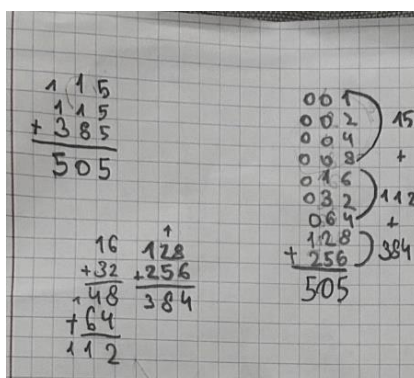 1 15
115
+ 385
505
16
+32
1 48
+64
112
1
128
+256
384
001
002
004
008
016
032
064
128
+ 256
505
15
+
112
+
384